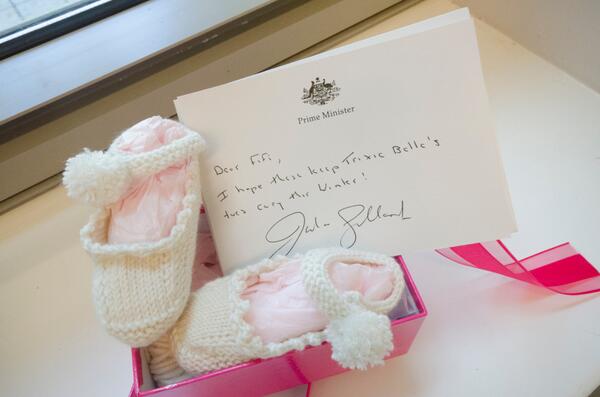 Prime Minister
Dear Fifi,
I hope these keep Trixie Belle's
toes cosy this Winter!
Julia Gillard